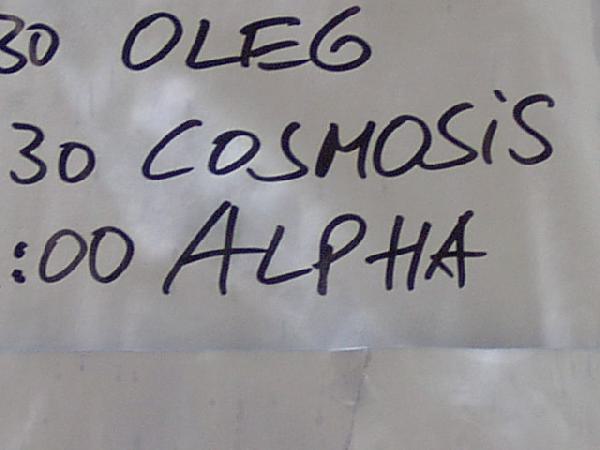 30 OLEG
30 COSMOSiS
:00 ALPHA